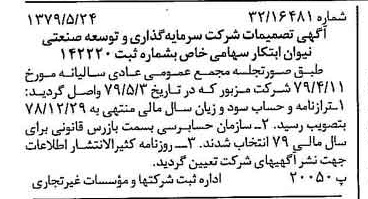 شماره ۳۲/۱۶۴۸۱ ۱۳۷۹/۵/۲۴
آگهی تصمیمات شرکت سرمایه‌گذاری و توسعه صنعتی
نیوان ابتکار سهامی خاص بشماره ثبت ۱۴۲۲۲۰
طبق صورتجلسه مجمع عمومی عادی سالیانه مورخ
۷۹/۴/۱۱ شرکت مزبور که در تاریخ ۷۹/۵/۳ واصل گردید:
۱ـ ترازنامه و حساب سود و زیان سال مالی منتهی به ۷۸/۱۲/۲۹
بتصویب رسید. ۲ـ سازمان حسابرسی بسمت بازرس قانونی برای
سال مالی ۷۹ انتخاب شدند. ۳ـ روزنامه کثیرالانتشار اطلاعات
جهت نشر آگهیهای شرکت تعیین گردید.
پ ۲۰۰۵۰ اداره ثبت شرکتها و مؤسسات غیرتجاری